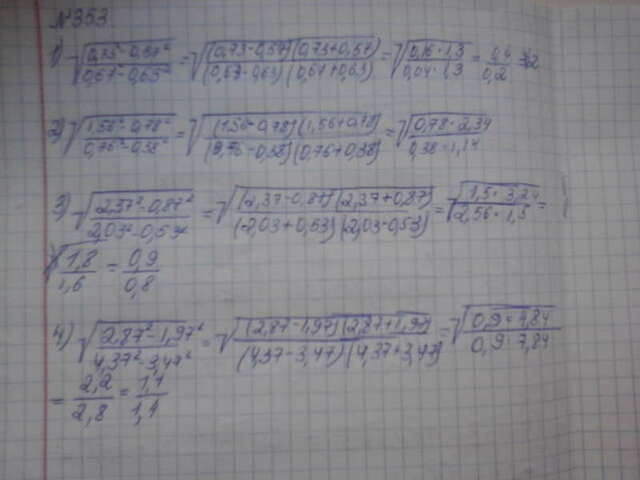 №353.
1) √(0,73² - 0,57²)/(0,67² - 0,63²) = √(0,73-0,57)(0,73+0,57)/(0,67-0,63)(0,67+0,63) = √(0,16·1,3)/(0,04·1,3) = 0,4/0,2 = 2
2) √(1,56² - 0,78²)/(0,76² - 0,38²) = √(1,56-0,78)(1,56+0,78)/(0,76-0,38)(0,76+0,38) = √(0,78·2,34)/(0,38·1,14)
3) √(2,37² - 0,87²)/(2,03² - 0,53²) = √(2,37-0,87)(2,37+0,87)/(2,03+0,53)(2,03-0,53) = √(1,5·3,24)/(2,56·1,5) =
1,8/1,6 = 0,9/0,8
4) √(2,87² - 1,97²)/(4,37² - 3,47²) = √(2,87-1,97)(2,87+1,97)/(4,37-3,47)(4,37+3,47) = √(0,9·4,84)/(0,9·7,84)
= 2,2/2,8 = 1,1/1,4